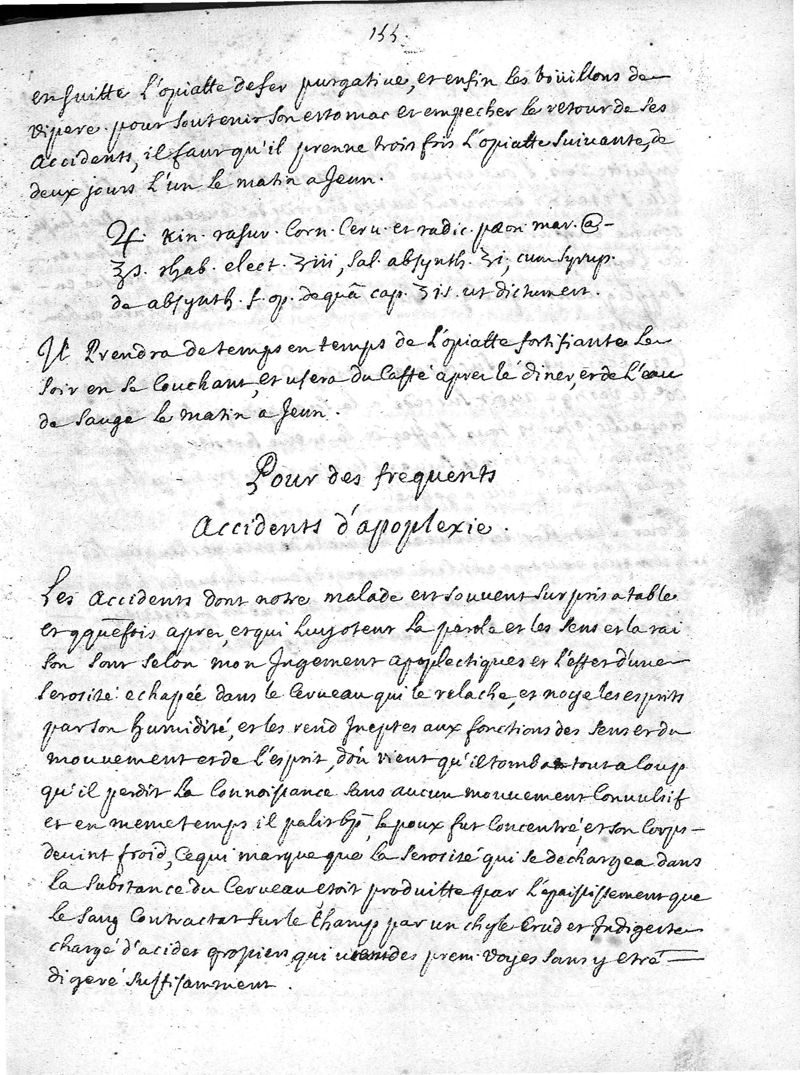 155.
ensuitte L'opiatte de fer purgative, et enfin les bouillons de
vipere. pour soutenir son estomac et empecher le retour de ses
accidents, il faut qu'il prenne trois fois L'opiatte suivante, de
deux jours L'un le matin a Jeun.
♃. Kin. rasur. Corn. Cerv. et radic. pæon. mar. @
ʒs. rhab. elect. ʒiii, sal. absynth. ʒi, cum syrup.
de absynth. f. op. de quâ cap. ʒis. ut dictum est.
Il Prendra de temps en temps de L'opiatte fortifiante le
soir en se Couchant, et usera du Caffé apres le diner, et de L'eau
de sauge le matin a Jeun.
Pour des frequents
accidents d'apoplexie.
Les accidents dont notre malade est souvent surpris a table
et qquefois apres, et qui luy otent la parole et les sens et la rai
son sont selon mon Jugement apoplectiques et l'effet d'une
serosité echapée dans le Cerveau qui le relache, et noye les esprits
par son humidité, et les rend Ineptes aux fonctions des sens et du
mouvement et de l'esprit, d'où vient qu'il tomba tout a Coup
qu'il perdit la Connoissance sans aucun mouvement Convulsif
et en meme temps il palit, le poux fut Concentré et son Corps
devint froid, Ce qui marque que la serosité qui se dechargea dans
la substance du Cerveau etoit produitte par L'epaississement que
le sang Contractat sur le Champ par un chyle Crud et Indigeste
chargé d'acides grossiers qui des prem. voyes sans y etre
digeré suffisamment.